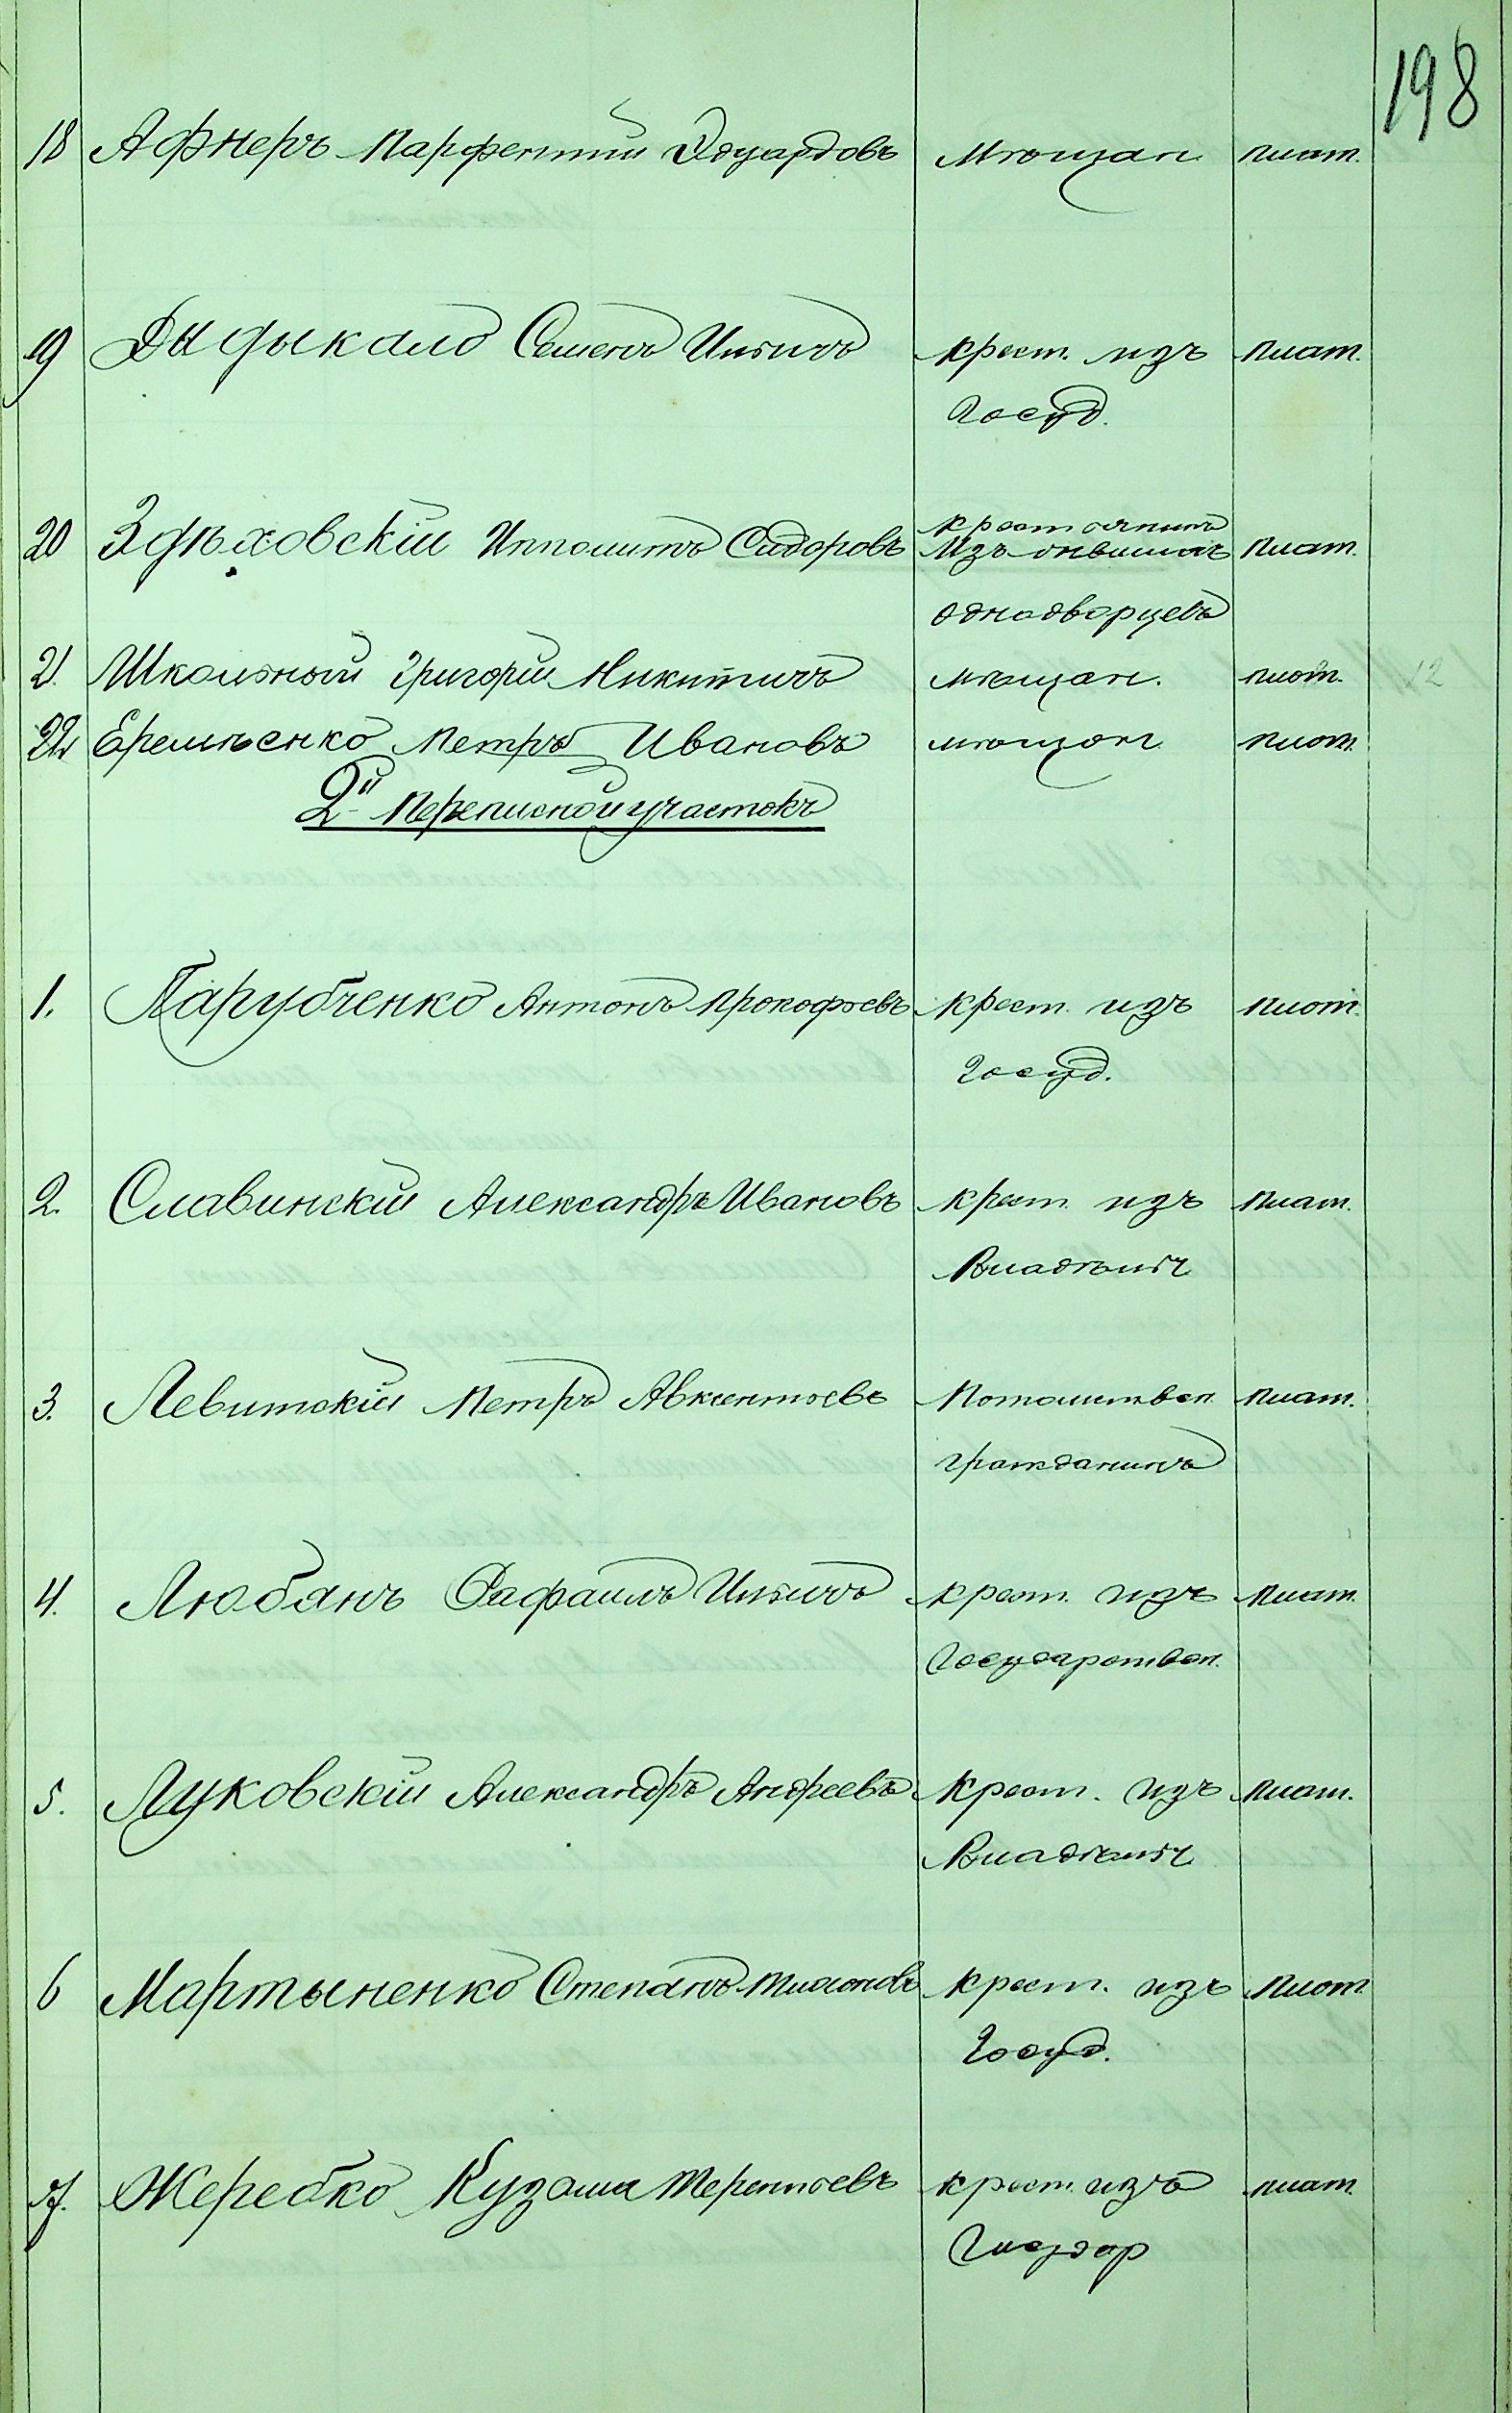 198
18 Афнеръ Парфентій Эдуардовъ мѣщан. плат.
19 Дыдыкало Семенъ Ильичъ крест. изъ плат.
Госуд.
крестьянинъ
20 Здѣховскій Ипполитъ Сидоровъ изъ бывшихъ плат.
однодворцевъ
21. Школьный Григорій Никитичъ мѣщан. плат.
22 Еремѣенко Петръ Ивановъ мѣщан. плат.
2й Переписной участокъ
1. Парубченко Антонъ Прокофьевъ крест. изъ плат.
Госуд.
2. Славинскій Александръ Ивановъ крест. изъ плат.
Владѣльч.
3. Левитскій Петръ Авксентьевъ Потомствен. плат.
гражданинъ
4. Любанъ Рафаилъ Ильичъ крест. изъ плат.
Государствен.
5. Луковскій Александръ Андреевъ крест. изъ плат.
Владѣльч.
6 Мартыненко Степанъ Тихоновъ крест. изъ плат.
Госуд.
7. Жеребко Кузьма Терентьевъ крест. изъ плат.
Государ